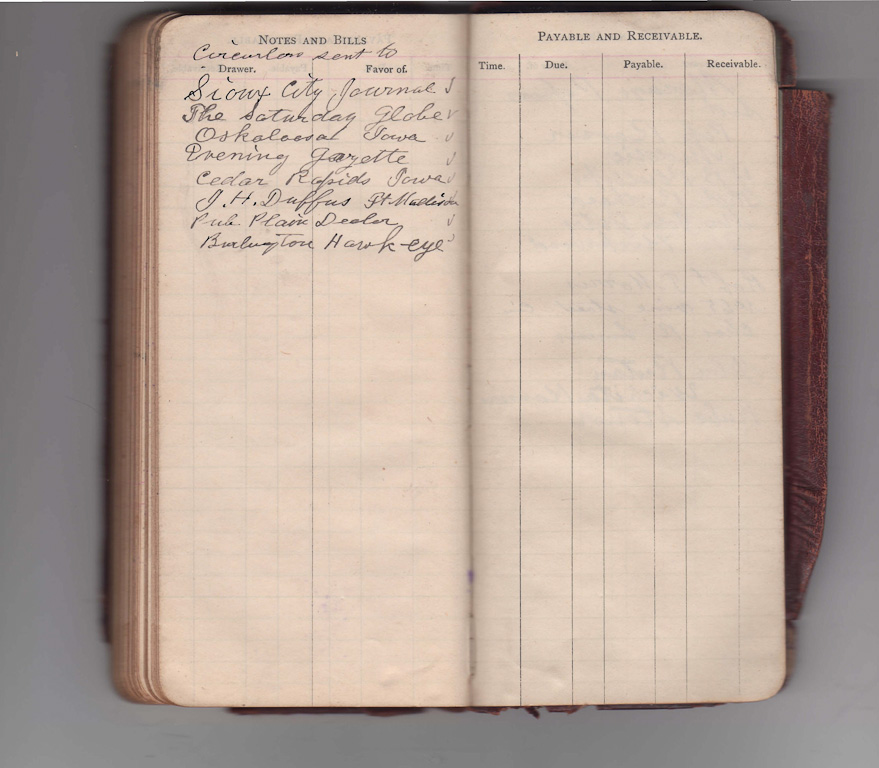 NOTES AND BILLS
Circulars sent to
Drawer. Favor of.
Sioux City Journal √
The Saturday Globe √
Oskaloosa Iowa √
Evening Gazette √
Cedar Rapids Iowa √
J.H. Duffus Ft. Madison
Pub Plain Dealer √
Burlington Hawk-eye √
PAYABLE AND RECEIVABLE.
Time. Due. Payable. Receivable.